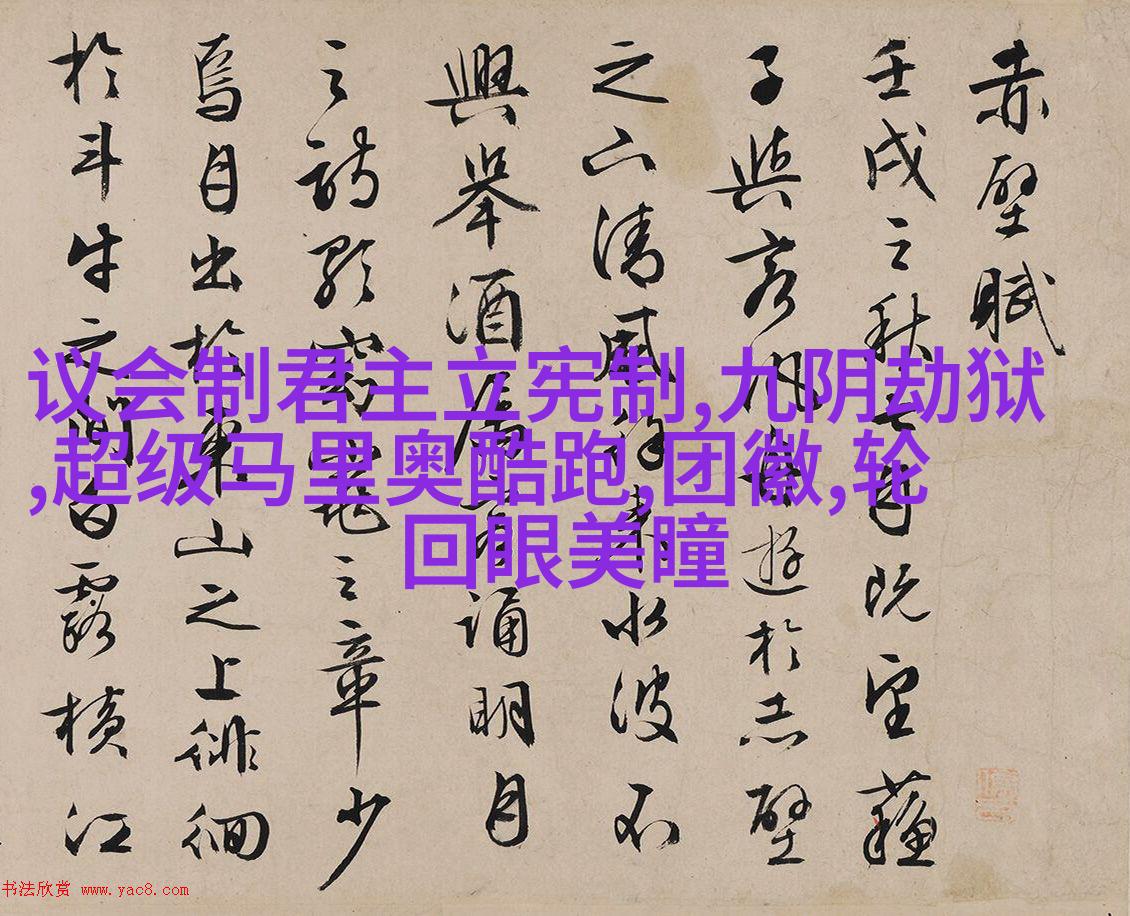 赤壁賦
壬戌之秋七月既望蘇
子與客泛舟遊於赤壁
之下清風徐來水波不
興舉酒屬客誦明月
之詩歌窈窕之章少
焉月出於東山之上徘徊
於斗牛之間白露橫江
议会制君主立宪制,九阴劫狱
,超级马里奥酷跑,团徽,轮
回眼美瞳
书法欣赏 www.yac8.com